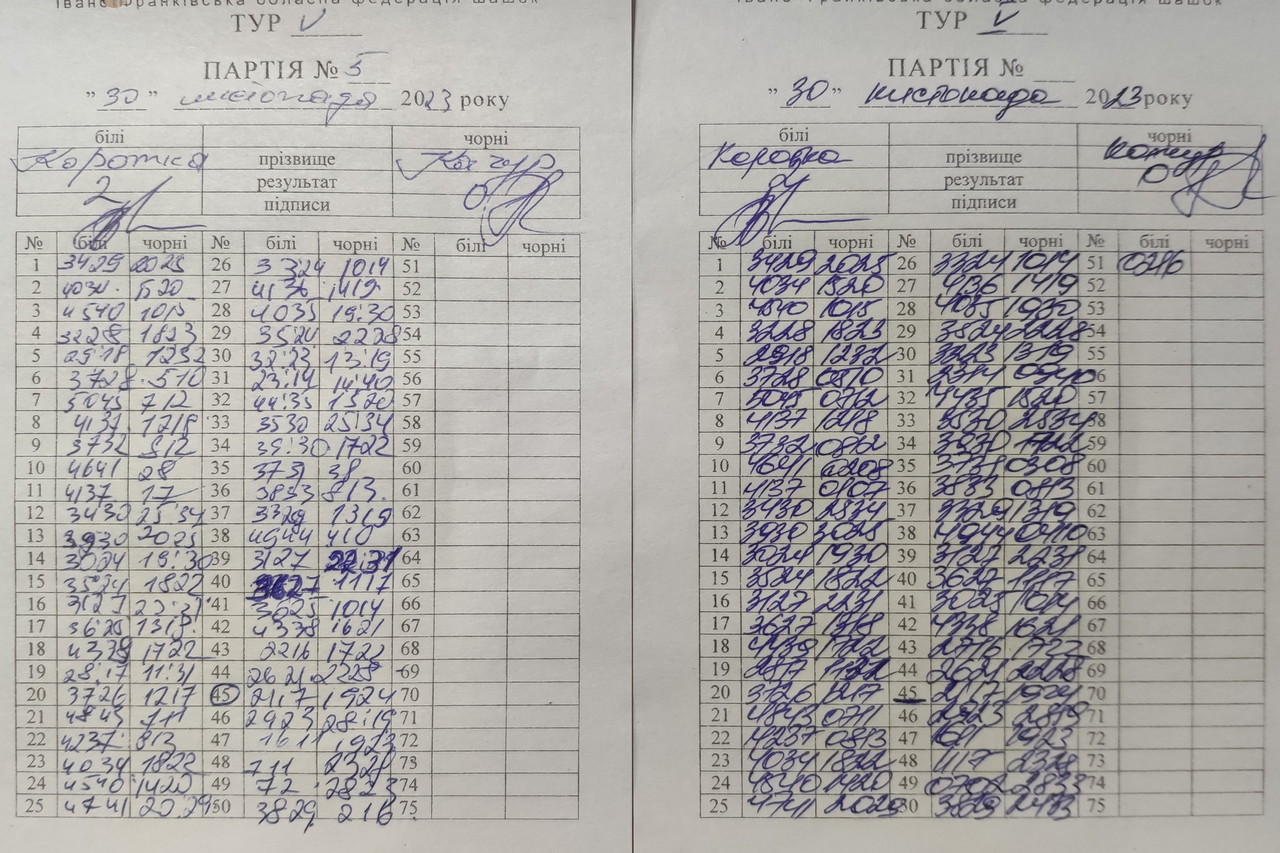 Івано-Франківська обласна федерація шашок
ТУР V
ПАРТІЯ № 5
"30" листопада 2023 року
білі чорні
Коротка прізвище Качур
2 результат 0
підписи
№ білі чорні № білі чорні № білі чорні
1 3429 2025 26 3324 1014 51
2 4034 1520 27 4136 1419 52
3 4540 1015 28 4035 19:30 53
4 3228 1823 29 3524 2228 54
5 29:18 1232 30 32:23 13:19 55
6 37:28 510 31 23:14 14:40 56
7 5045 712 32 44:35 1520 57
8 4137 1218 33 3530 25:34 58
9 3732 812 34 39:30 1722 59
10 4641 28 35 3731 38 60
11 4137 17 36 3833 813 61
12 3430 25:34 37 3329 1319 62
13 3930 2025 38 4944 410 63
14 3024 19:30 39 3127 22:31 64
15 35:24 1822 40 3627 1117 65
16 3127 22:31 41 3025 1014 66
17 3625 1318 42 4338 1621 67
18 4339 1722 43 2216 1722 68
19 28:17 11:31 44 2621 2228 69
20 3726 1217 45 2117 1924 70
21 4843 711 46 2923 28:19 71
22 4237 813 47 1611 1923 72
23 4034 1822 48 711 2328 73
24 4540 1420 49 72 2833 74
25 4741 20:29 50 3829 216 75
Івано-Франківська обласна федерація шашок
ТУР V
ПАРТІЯ №
"30" листопада 2023 року
білі чорні
Коротка прізвище
2 результат 0
підписи
№ білі чорні № білі чорні № білі чорні
1 3429 2025 26 3324 1014 51 0216
2 4034 1520 27 4136 1419 52
3 4540 1015 28 4035 1930 53
4 3228 1823 29 3524 2228 54
5 2918 1232 30 3223 1319 55
6 3728 0510 31 2314 56
7 5045 0712 32 4435 1520 57
8 4137 1218 33 3530 2534 58
9 3732 0812 34 3930 1722 59
10 4641 0208 35 3731 0308 60
11 4137 0107 36 3833 0813 61
12 3430 2534 37 3329 1319 62
13 3930 2025 38 4944 0410 63
14 3024 1930 39 3127 2231 64
15 3524 1822 40 3627 1117 65
16 3127 2231 41 3025 1014 66
17 3627 1318 42 4338 1621 67
18 4439 1722 43 2716 1722 68
19 2817 1122 44 2621 2228 69
20 3726 1217 45 2117 1924 70
21 4843 0711 46 2923 2819 71
22 4237 0813 47 1611 1923 72
23 4034 1822 48 1117 2328 73
24 4540 1420 49 0702 2833 74
25 4741 2029 50 3829 75